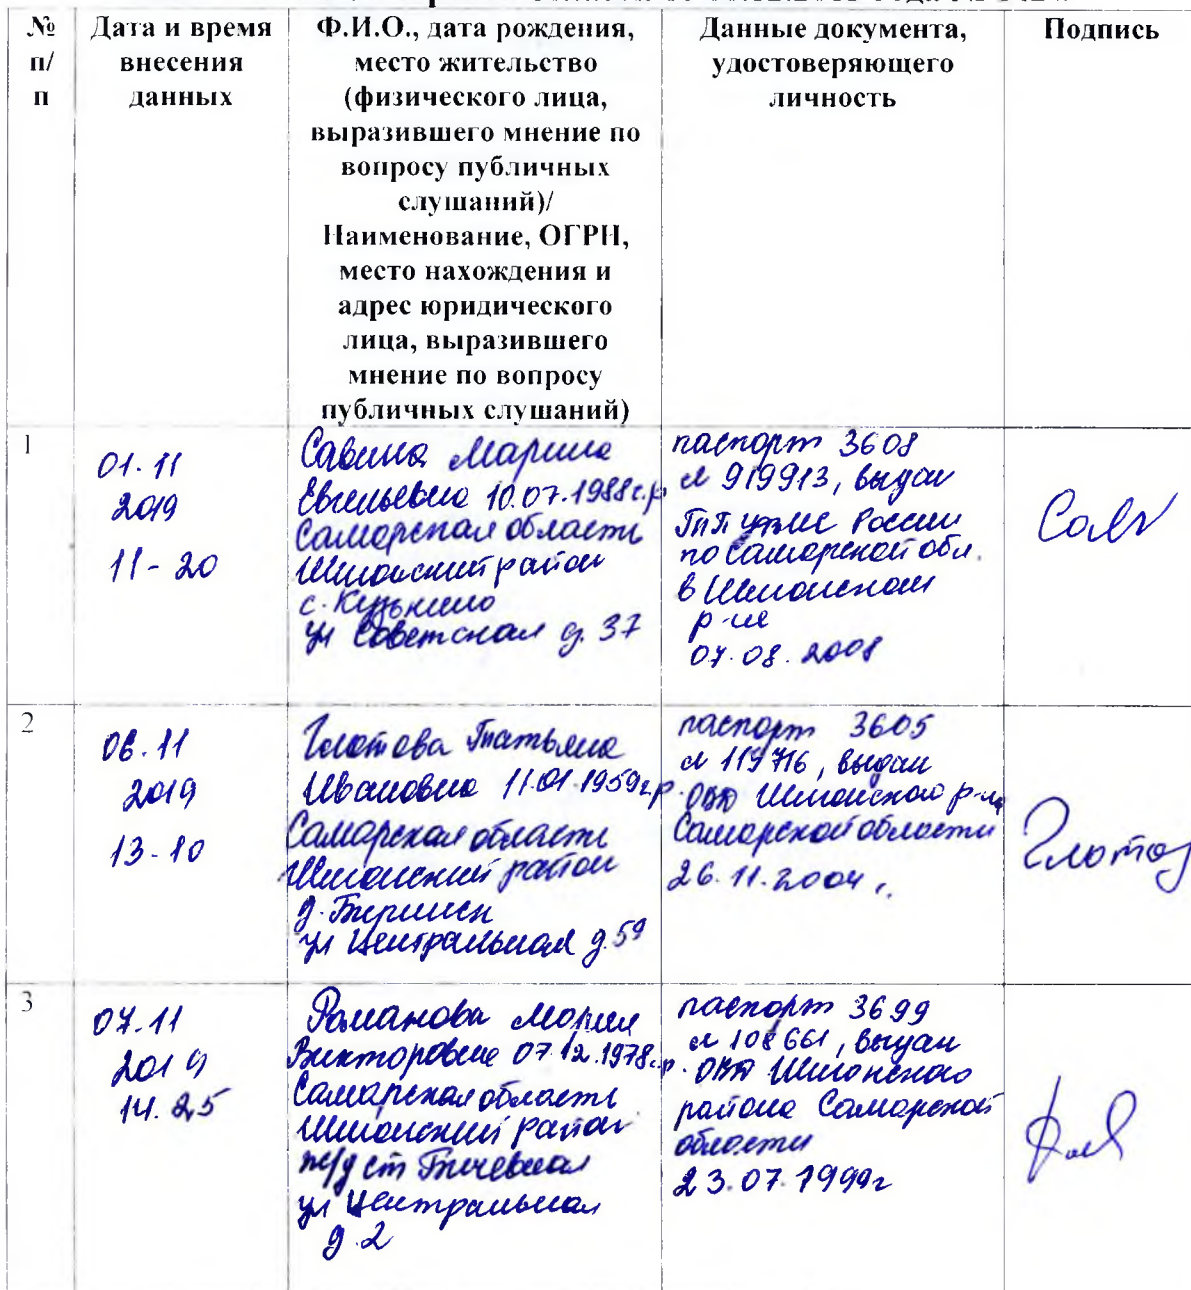 №
п/
п
Дата и время
внесения
данных
Ф.И.О., дата рождения,
место жительство
(физического лица,
выразившего мнение по
вопросу публичных
слушаний)/
Наименование, ОГРН,
место нахождения и
адрес юридического
лица, выразившего
мнение по вопросу
публичных слушаний)
Данные документа,
удостоверяющего
личность
Подпись
1
01.11
2019
11-20
Савина Марина
Евгеньевна 10.07.1988г.р
Самарская области
Шигонский район
с. Кузькино
ул Советская д. 37
паспорт 3608
№ 919913, выдан
ТП УФМС России
по Самарской обл.
в Шигонском
р-не
07.08.2008
Сав
2
06.11
2019
13-10
Глотова Татьяна
Ивановна 11.01.1959г.р
Самарская области
Шигонский район
д.
ул Центральная д.59
паспорт 3605
№ 119716, выдан
ОВД Шигонского р-на
Самарской области
26.11.2004г.
Глотов
3
07.11
2019
14.25
Романова Мария
Викторовна 07.12.1978г.р
Самарская области
Шигонский район
ж/д ст Бичевная
ул Центральная
д.2
паспорт 3699
№ 108661, выдан
ОВД Шигонского
района Самарской
области
23.07.1999г